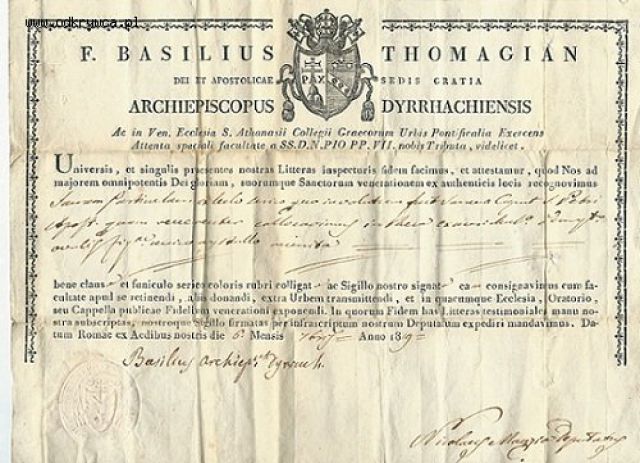 www.odkrywca.pl
F. BASILIUS THOMAGIAN
DEI ET APOSTOLICAE SEDIS GRATIA
PAX
ARCHIEPISCOPUS DYRRHACHIENSIS
Ac in Ven. Ecclesia S. Athanasii Collegii Graecorum Urbis Pontificalia Exercens
Attenta speciali facultate a SS.D.N.PIO PP.VII. nobis Tributa, videlicet.
Universis, et singulis praesentes nostras Litteras inspecturis fidem facimus, et attestamur, quod Nos ad
majorem omnipotentis Dei gloriam, suorumque Sanctorum venerationem ex authenticis locis recognovimus
Sacram Particulam
Apost. quam reverenter collocavimus in theca
bene claus et funiculo serico coloris rubri colligat ac Sigillo nostro signat ea consignavimus cum fa-
cultate apud se retinendi, aliis donandi, extra Urbem transmittendi, et in quacumque Ecclesia, Oratorio,
seu Cappella publicae Fidelium venerationi exponendi. In quorum Fidem has Litteras testimoniales manu no-
stra subscriptas, nostroque Sigillo firmatas per infrascriptum nostrum Deputatum expediri mandavimus. Da-
tum Romae ex Aedibus nostris die 6 Mensis Anno 1819
Basilius Archiep.
Nicolaus Deputatus